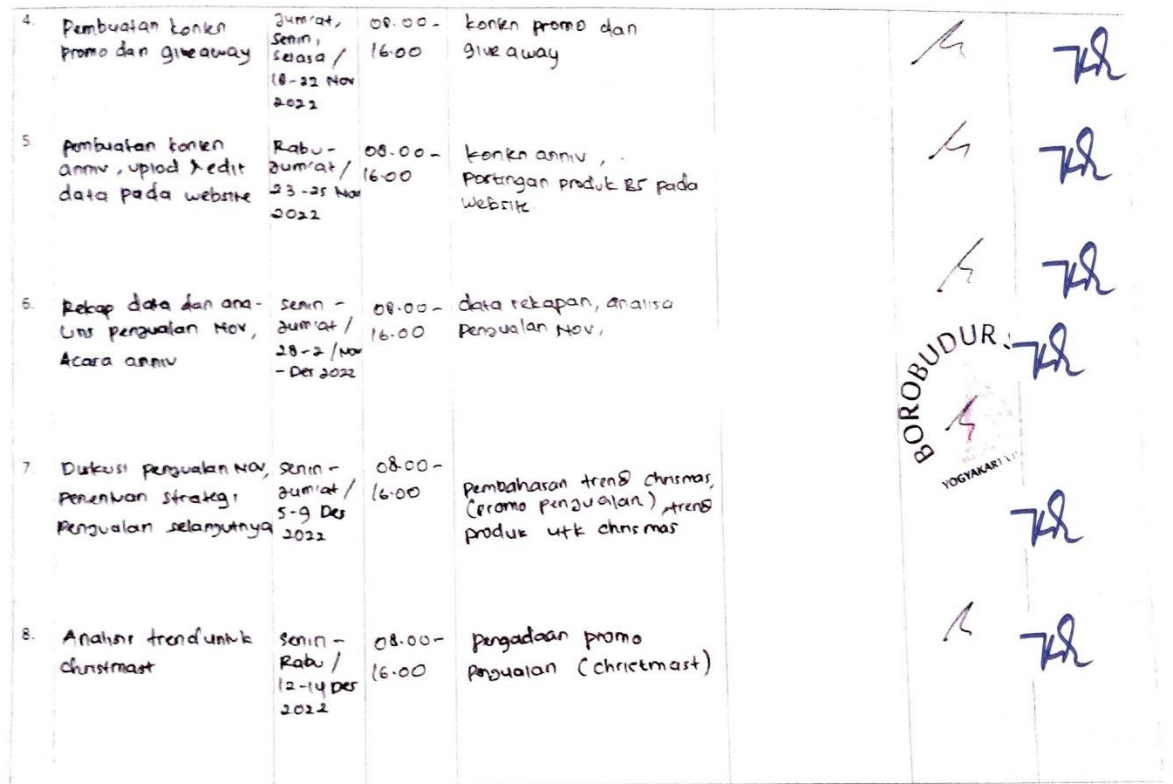 4. Pembuatan konten
promo dan giveaway
Jum'at,
Senin,
Selasa /
18-22 Nov
2022
08.00-
16.00
konten promo dan
give away
5. Pembuatan konten
anniv, uplod & edit
data pada website
Rabu-
Jum'at /
23-25 Nov
2022
08.00-
16.00
konten anniv,
Postingan produk BS pada
website
6. Rekap data dan ana-
lisis penjualan Nov,
Acara anniv
Senin -
Jum'at /
28-2 / Nov
- Des 2022
08.00-
16.00
data rekapan, analisa
penjualan Nov,
BOROBUDUR
YOGYAKARTA
7. Diskusi penjualan Nov,
Penentuan strategi
Penjualan selanjutnya
Senin -
Jum'at /
5-9 Des
2022
08.00-
16.00
Pembahasan trend chrismas,
(promo penjualan), trend
produk utk chrismas
8. Analisis trend untuk
christmast
Senin -
Rabu /
12-14 Des
2022
08.00-
16.00
pengadaan promo
Penjualan (christmast)